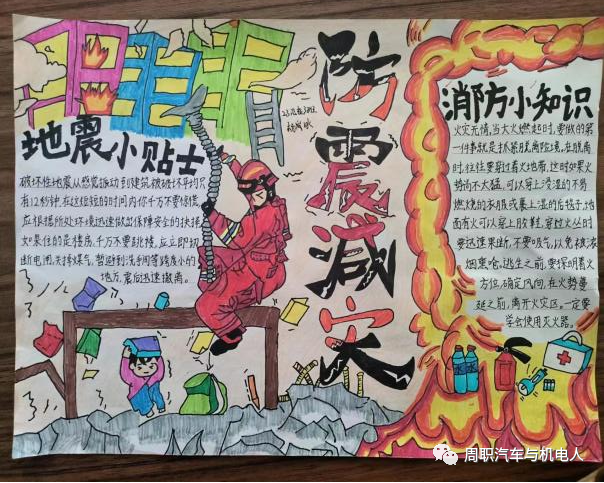 防震减灾
地震小贴士
破坏性地震从感觉振动到建筑被破坏平均只
有12秒钟,在这短短的时间内你千万不要惊慌,
应根据所处环境迅速做出保障安全的抉择,
如果住的是楼房,千万不要跳楼,应立即切
断电闸,关掉煤气,暂避到洗手间等跨度小的
地方,震后迅速撤离。
消防小知识
火灾无情,当大火燃起时,要做的第
一件事就是抓紧脱离险境,在脱离
时,往往要穿过着火地带,这时如果火
势尚不太猛,可以穿上浸湿的不易
燃烧的衣服或裹上湿的毯子,地
面有火可以穿上胶鞋,穿过火丛时
要迅速果断,不要吸气,以免被浓
烟熏呛,逃生之前,要探明着火
方位,确定风向,在火势蔓
延之前,离开火灾区,一定要
学会使用灭火器。
周职汽车与机电人